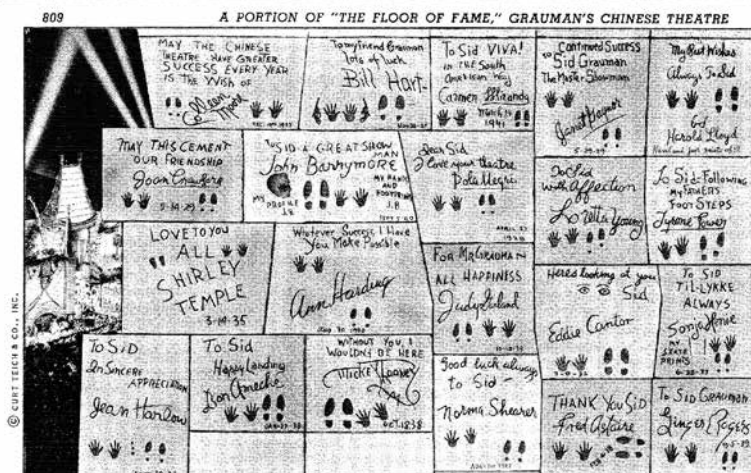 809
A PORTION OF "THE FLOOR OF FAME," GRAUMAN'S CHINESE THEATRE
MAY THE CHINESE
THEATRE HAVE GREATER
SUCCESS EVERY YEAR
IS THE WISH OF
Colleen Moore
To my friend Grauman
lots of luck
Bill Hart
To Sid VIVA!
IN THE South
American Way
Carmen Miranda
March 24
1941
Continued Success
to Sid Grauman
The Master Showman
Janet Gaynor
5-29-29
My Best Wishes
Always To Sid
Harold Lloyd
MAY THIS CEMENT
OUR FRIENDSHIP
Joan Crawford
9-14-29
TO SID A GREAT SHOW
MAN
John Barrymore
MY PROFILE
J.B.
MY HANDS
AND
FOOTPRINTS
J.B.
Dear Sid
I love your theatre
Pola Negri
APRIL
1928
To Sid
with Affection
Loretta Young
To Sid-Following
MY FATHERS
FOOT STEPS
Tyrone Power
LOVE TO YOU
ALL
SHIRLEY
TEMPLE
3-14-35
Whatever Success I Have
You Make Possible
Ann Harding
FOR MR GRAUMAN
ALL HAPPINESS
Judy Garland
Heres looking at you
Sid
Eddie Cantor
TO SID
TIL-LYKKE
ALWAYS
Sonja Henie
MY
SKATE
PRINTS
To SID
In Sincere
APPRECIATION
Jean Harlow
To Sid
Happy Landing
Don Ameche
WITHOUT YOU, I
WOULDN'T BE HERE
Mickey Rooney
OCT. 1838
Good luck always
to Sid-
Norma Shearer
THANK YOU SID
Fred Astaire
To SID GRAUMAN
Ginger Rogers
© CURT TEICH & CO., INC.